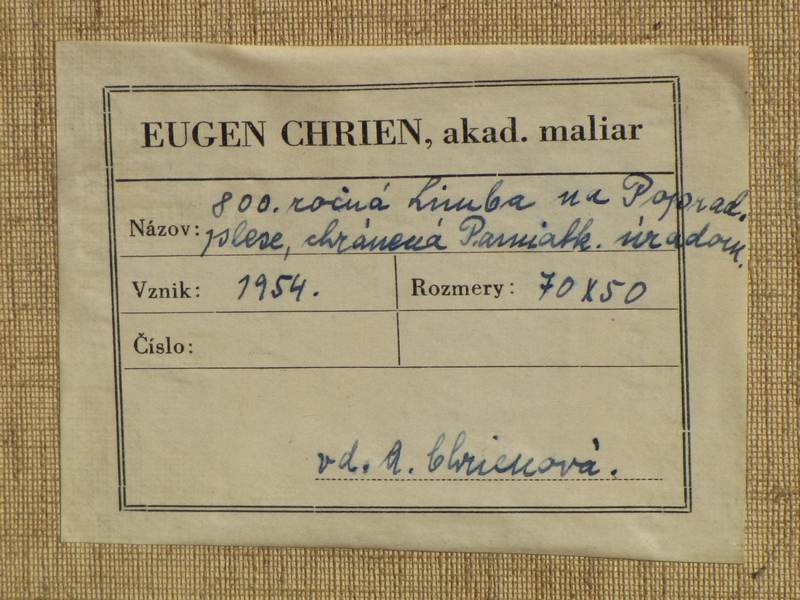 EUGEN CHRIEN, akad. maliar
800. ročná Limba na Poprad.
Názov: plese, chránená Pamiatk. úradom.
Vznik: 1954. Rozmery: 70X50
Číslo:
vd. A. Chrienová.